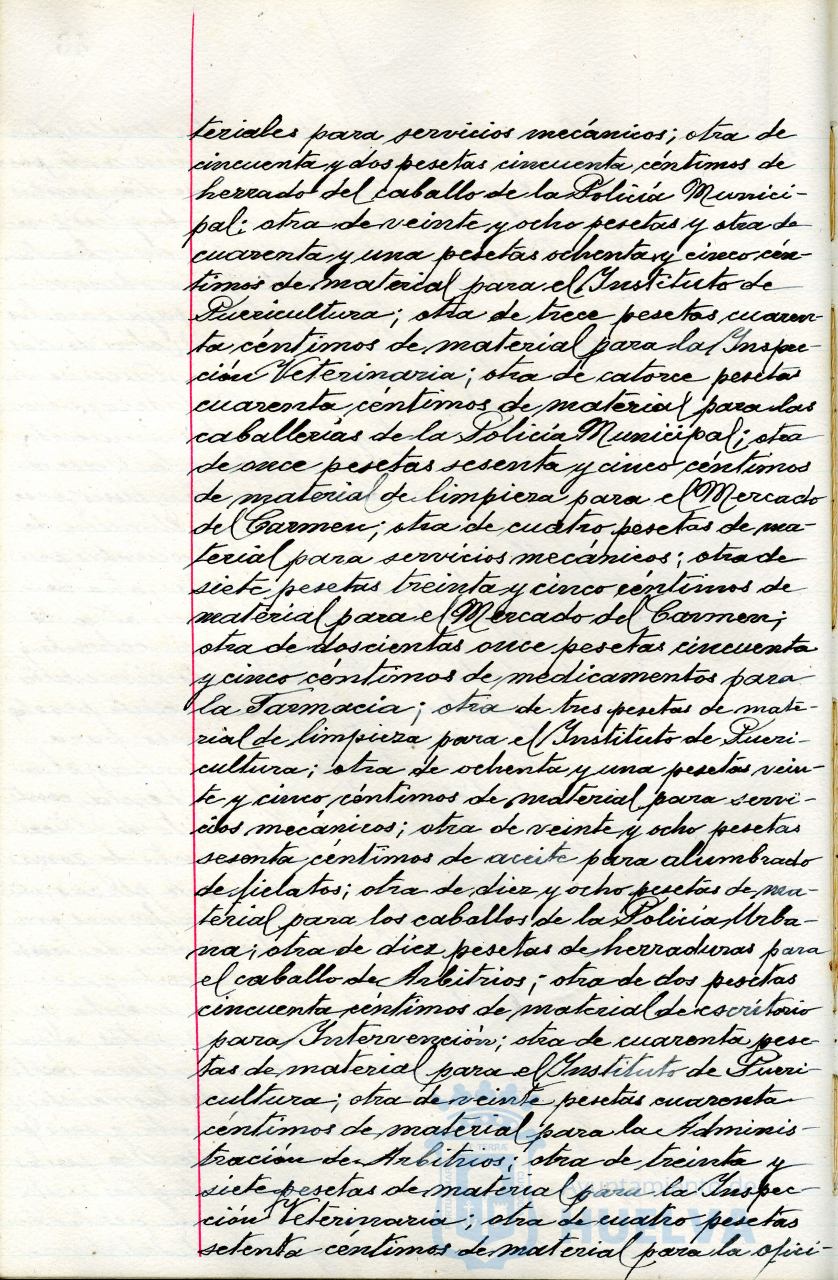 teriales para servicios mecánicos; otra de
cincuenta y dos pesetas cincuenta céntimos de
herrado del caballo de la Policía Munici-
pal; otra de veinte y ocho pesetas y otra de
cuarenta y una pesetas ochenta y cinco cén-
timos de material para el Instituto de
Puericultura; otra de trece pesetas cuaren-
ta céntimos de material para la Inspec-
ción Veterinaria; otra de catorce pesetas
cuarenta céntimos de material para las
caballerías de la Policía Municipal; otra
de once pesetas sesenta y cinco céntimos
de material de limpieza para el Mercado
del Carmen; otra de cuatro pesetas de ma-
terial para servicios mecánicos; otra de
siete pesetas treinta y cinco céntimos de
material para el Mercado del Carmen;
otra de doscientas once pesetas cincuenta
y cinco céntimos de medicamentos para
la Farmacia; otra de tres pesetas de mate-
rial de limpieza para el Instituto de Pueri-
cultura; otra de ochenta y una pesetas vein-
te y cinco céntimos de material para servi-
cios mecánicos; otra de veinte y ocho pesetas
sesenta céntimos de aceite para alumbrado
de fielatos; otra de diez y ocho pesetas de ma-
terial para los caballos de la Policía Urba-
na; otra de diez pesetas de herraduras para
el caballo de Arbitrios; otra de dos pesetas
cincuenta céntimos de material de escritorio
para Intervención; otra de cuarenta pese-
tas de material para el Instituto de Pueri-
cultura; otra de veinte pesetas cuarenta
céntimos de material para la Adminis-
tración de Arbitrios; otra de treinta y
siete pesetas de material para la Inspec-
ción Veterinaria; otra de cuatro pesetas
setenta céntimos de material para la ofici-
Ayuntamiento de
HUELVA